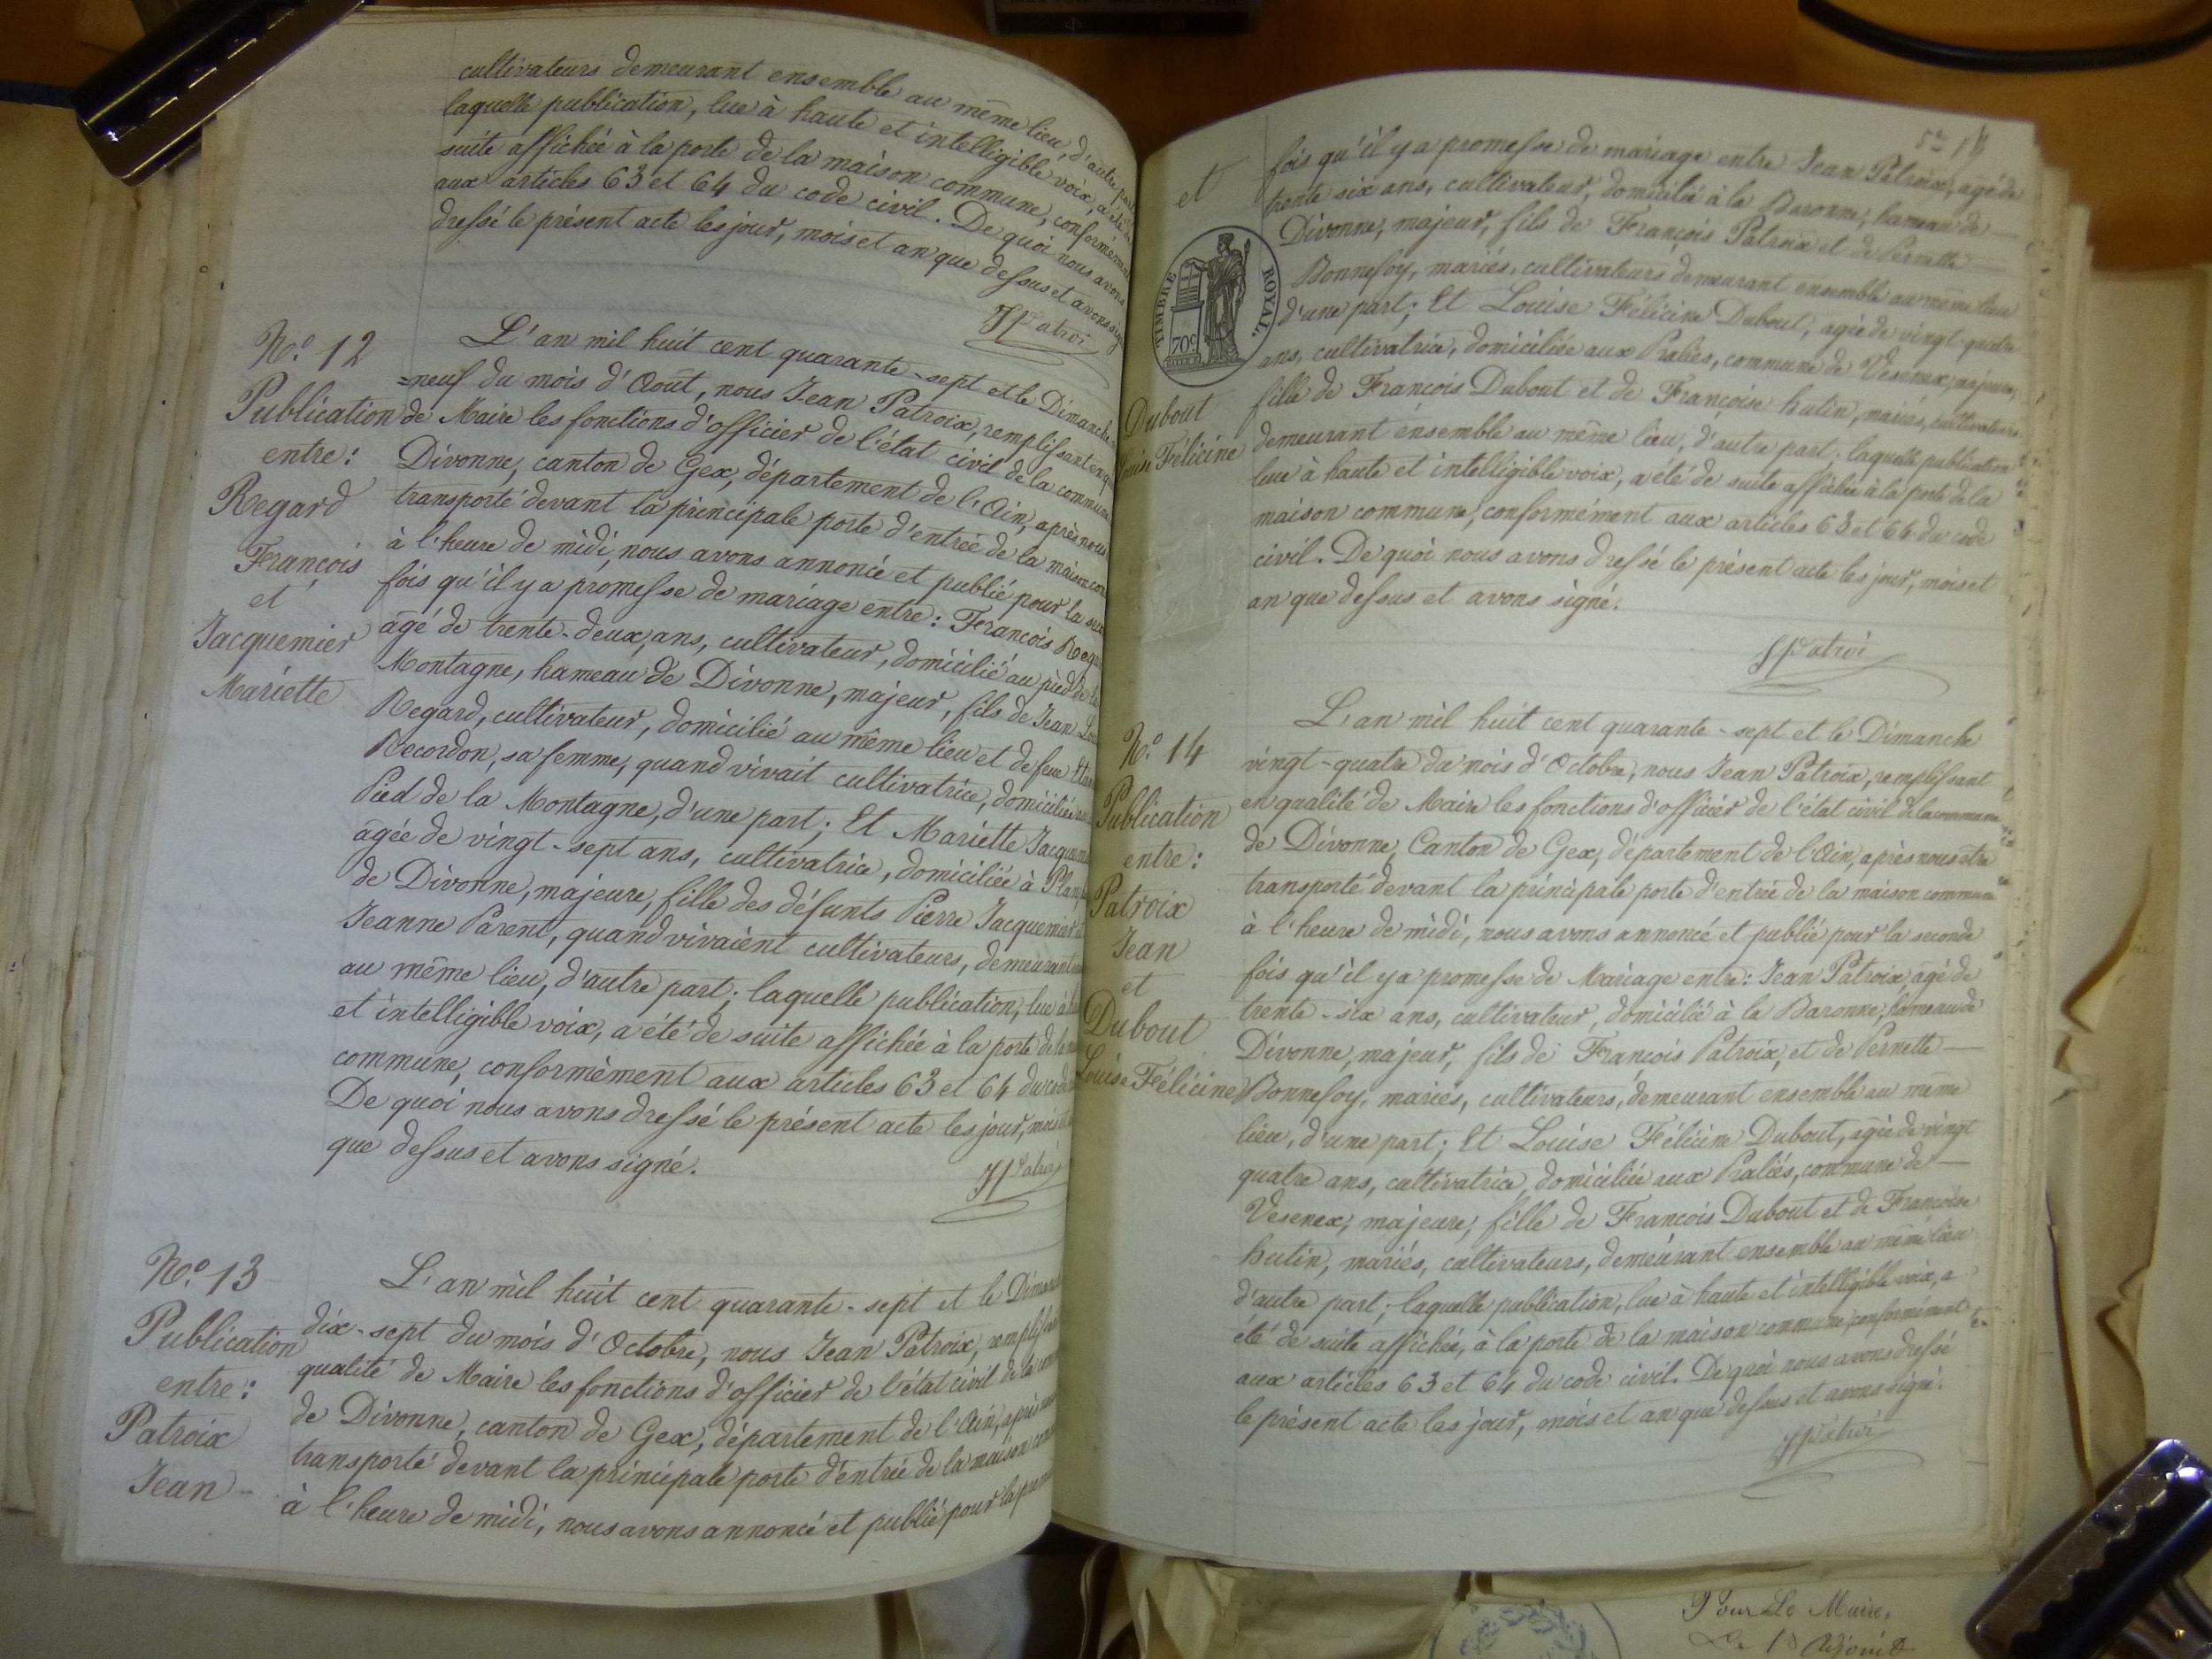 cultivateurs demeurant ensemble au même lieu, d'autre part
laquelle publication, lue à haute et intelligible voix, a été de
suite affichée à la porte de la maison commune, conformément
aux articles 63 et 64 du code civil. De quoi nous avons
dressé le présent acte les jour, mois et an que dessus et avons signé
JPatroi
N.o 12
Publication
entre:
Regard
François
et
Jacquemier
Mariette
L'an mil huit cent quarante-sept et le Dimanche
=neuf du mois d'Août, nous Jean Patroix, remplissant en qualité
de Maire les fonctions d'officier de l'état civil de la commune
Divonne, canton de Gex, département de l'Ain, après nous
transporté devant la principale porte d'entrée de la maison com
à l'heure de midi, nous avons annoncé et publié pour la
fois qu'il y a promesse de mariage entre: François Regard
âgé de trente-deux ans, cultivateur, domicilié au pied de la
Montagne, hameau de Divonne, majeur, fils de Jean Louis
Regard, cultivateur, domicilié au même lieu et de feue
Recordon, sa femme, quand vivait cultivatrice, domiciliée au
Pied de la Montagne, d'une part; Et Mariette Jacquemier
âgée de vingt-sept ans, cultivatrice, domiciliée à
de Divonne, majeure, fille des défunts Pierre Jacquemier et
Jeanne Parent, quand vivaient cultivateurs, demeurant
au même lieu, d'autre part; laquelle publication, lue à
et intelligible voix, a été de suite affichée à la porte de la
commune, conformément aux articles 63 et 64 du code
De quoi nous avons dressé le présent acte les jour, mois et
que dessus et avons signé.
JPatroi
N.o 13
Publication
entre:
Patroix
Jean
L'an mil huit cent quarante-sept et le Dimanche
dix-sept du mois d'Octobre, nous Jean Patroix, remplissant
qualité de Maire les fonctions d'officier de l'état civil de la com
de Divonne, canton de Gex, département de l'Ain, après nous
transporté devant la principale porte d'entrée de la maison com
à l'heure de midi, nous avons annoncé et publié pour la première
et
TIMBRE ROYAL.
70c
Dubout
Louise Félicine
fois qu'il y a promesse de mariage entre Jean Patroix, agé de
trente six ans, cultivateur, domicilié à la Baronne, hameau de
Divonne, majeur, fils de François Patroix et de Pernette
Bonnefoy, mariés, cultivateurs demeurant ensemble au même lieu
d'une part; Et Louise Félicine Dubout, agée de vingt quatre
ans, cultivatrice, domiciliée aux Praliès, commune de Vesenex, majeure,
fille de François Dubout et de Françoise hutin, mariés, cultivateurs
demeurant ensemble au même lieu, d'autre part; laquelle publication
lue à haute et intelligible voix, a été de suite affichée à la porte de la
maison commune, conformément aux articles 63 et 64 du code
civil. De quoi nous avons dressé le présent acte les jour, mois et
an que dessus et avons signé.
JPatroi
N.o 14
Publication
entre:
Patroix
Jean
et
Dubout
Louise Félicine
L'an mil huit cent quarante-sept et le Dimanche
vingt-quatre du mois d'Octobre, nous Jean Patroix, remplissant
en qualité de Maire les fonctions d'officier de l'état civil de la commune
de Divonne, Canton de Gex, département de l'Ain, après nous être
transporté devant la principale porte d'entrée de la maison commune
à l'heure de midi, nous avons annoncé et publié pour la seconde
fois qu'il y a promesse de Mariage entre: Jean Patroix, agé de
trente-six ans, cultivateur, domicilié à la Baronne, hameau de
Divonne, majeur, fils de François Patroix, et de Pernette
Bonnefoy, mariés, cultivateurs, demeurant ensemble au même
lieu, d'une part; Et Louise Félicine Dubout, agée de vingt
quatre ans, cultivatrice, domiciliée aux Praliès, commune de
Vesenex, majeure, fille de François Dubout et de Françoise
hutin, mariés, cultivateurs, demeurant ensemble au même lieu
d'autre part; laquelle publication, lue à haute et intelligible voix, a
été de suite affichée, à la porte de la maison commune, conformément
aux articles 63 et 64 du code civil. De quoi nous avons dressé
le présent acte les jour, mois et an que dessus et avons signé.
JPatroi
Pour Le Maire,